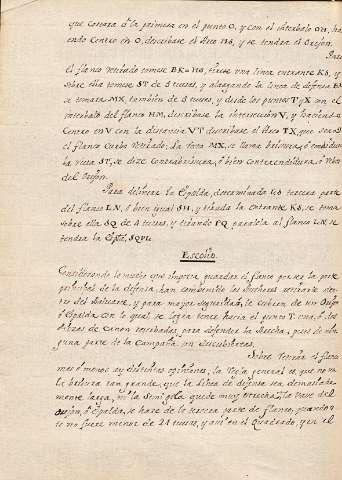 que cortara à la primera en el punto O, y con el interbalo ON, ha,
endo Centro en O, describase el Arco NS, y se tendra el Orejon.
Para
el flanco Retirado tomese BK = NS, tirese una linea entrante KS, y
sobre ella tomese ST de 5 tuesas, y alargando la linea de defensa
se tomara MX, también de 5 tuesas, y desde los puntos T y X con el
interbalo del flanco HM, describase la interseccion V, y haciendo
Centro en V con la distancia VT describase el Arco TX, que sera
el flanco Curbo Retirado. La recta MX, se llama
la recta ST, se dize Contrabrisura, ò bien Contraenditura, ò
del Orejon.
Para delinear la Espalda, determinada LS tercera parte
del flanco LN, ò bien igual SH, y tirada la Entrante KS, se toma
sobre ella SQ de 4 tuesas, y tirando PQ paralela al flanco LN, se
tendra la Espalda SQPL.
Escolio.
Considerando lo mucho que importa guardar el flanco por ser la parte
principal de la defensa, han combenido los Authores retirarle dentro
del Baluarte, y para mayor seguridad, le cubren de un Orejon
ò Espalda con lo qual se logra tener hacia el punto T una, ò dos
Piezas de Cañon reserbadas, para defender la Brecha, pues de nin
guna parte de la Campaña son descubiertas.
Sobre Retirar el flanco
mas ò menos ay distintas opiniones, la Regla general es, que no
la bri sura tan grande, que la linea de defensa sea demasiada-
mente larga, ni la Semigola quede muy estrecha, la Base del
Orejon, ò Espalda, se hace de la tercera parte de flanco, quando es
te no fuere menor de 24 tuesas, y asi en el Quadrado, y en el